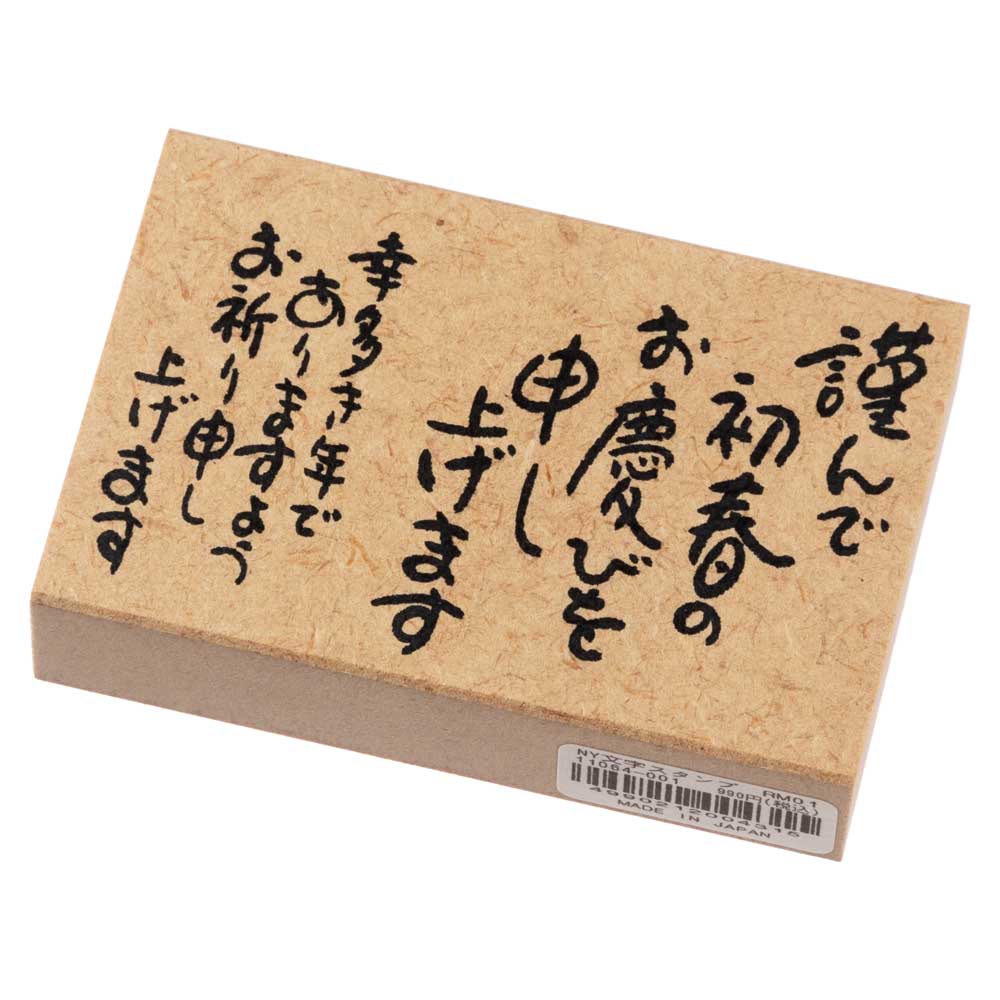 謹んで
初春の
お慶びを
申し
上げます
幸多き年で
ありますよう
お祈り申し
上げます
NY文字スタンプ RM01
11064-001 990円(税込)
4990212004316
MADE IN JAPAN